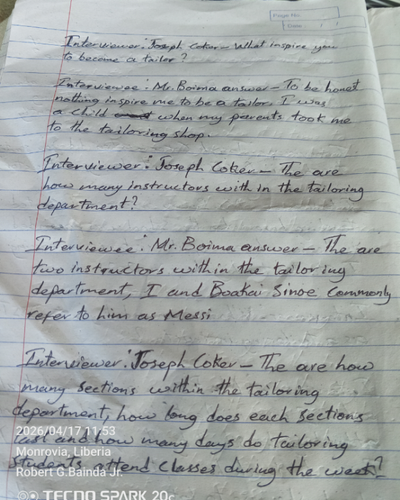 Page No.
Date / /
Interviewer: Joseph Coker - What inspire you
to become a tailor?
Interviewee: Mr. Boima answer - To be honest
nothing inspire me to be a tailor. I was
a child when my parents took me
to the tailoring shop.
Interviewer: Joseph Coker - The are
how many instructors with in the tailoring
department?
Interviewee: Mr. Boima answer - The are
two instructors within the tailoring
department, I and Boakai Sinoe Commonly
refer to him as Messi
Interviewer: Joseph Coker - The are how
many sections within the tailoring
department, how long does each sections
last and how many days do tailoring
students attend classes during the week?
2026/04/17 11:53
Monrovia, Liberia
Robert G.Bainda Jr.
TECNO SPARK 20c